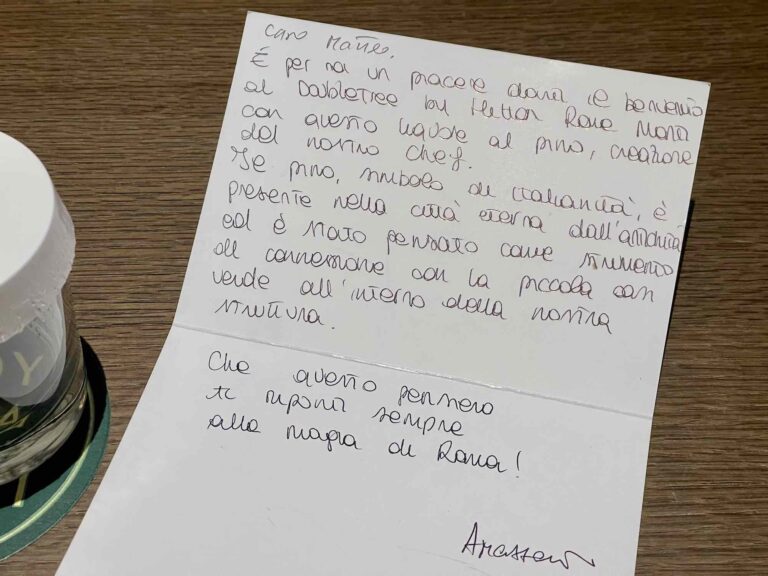 Caro Matteo,
È per noi un piacere darti il benvenuto
al Doubletree by Hilton Rome Monti
con questo liquore al pino, creazione
del nostro chef.
Il pino, simbolo di italianità, è
presente nella città eterna dall'antichità
ed è stato pensato come strumento
di connessione con la piccola oasi
verde all'interno della nostra
struttura.
Che questo pensiero
ti riporti sempre
alla magia di Roma!